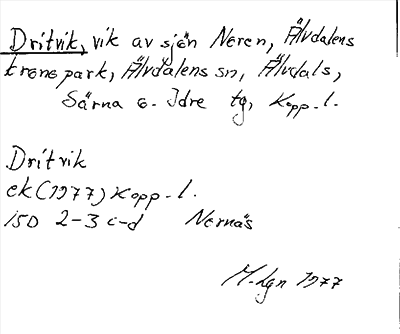 Dritvik, vik av sjön Neren, Älvdalens
kronopark, Älvdalens sn, Älvdals,
Särna o. Idre tg, Kopp. l.
Dritvik
ek (1977) Kopp. l.
15D 2-3 c-d Nernäs
M. Lgn 1977